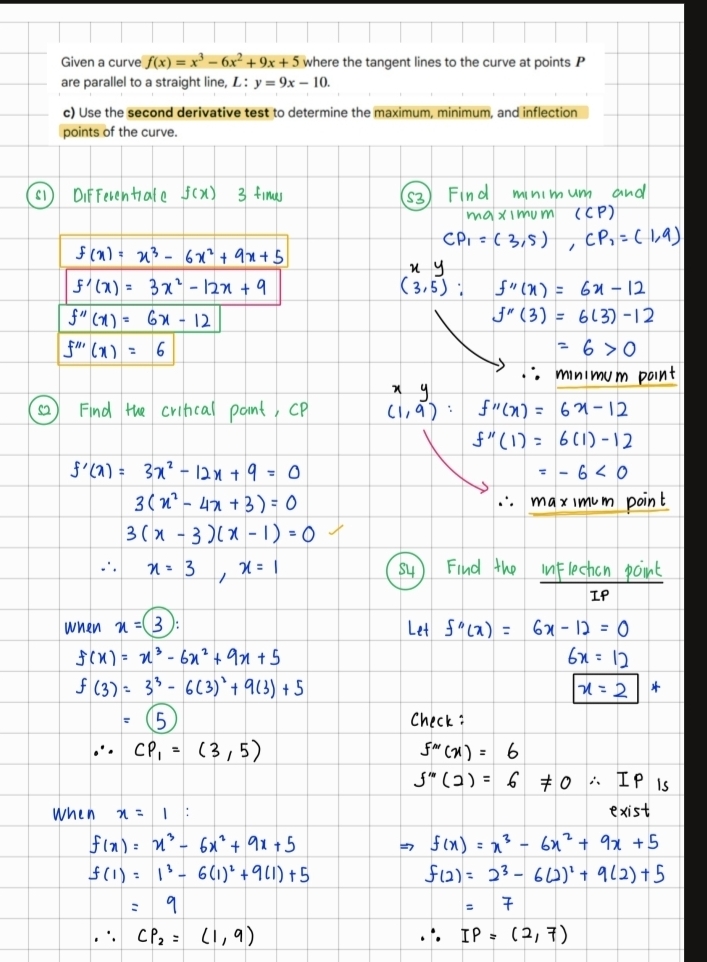 Given a curve f(x) = x³ − 6x² + 9x + 5 where the tangent lines to the curve at points P
are parallel to a straight line, L: y = 9x − 10.
c) Use the second derivative test to determine the maximum, minimum, and inflection
points of the curve.
S1 Differentiate f(x) 3 times
f(x) = x³ - 6x² + 9x + 5
f'(x) = 3x² - 12x + 9
f"(x) = 6x - 12
f"'(x) = 6
S2 Find the critical point, CP
f'(x) = 3x² - 12x + 9 = 0
3(x² - 4x + 3) = 0
3(x - 3)(x - 1) = 0 ✓
∴ x = 3 , x = 1
when x = 3 :
f(x) = x³ - 6x² + 9x + 5
f(3) = 3³ - 6(3)² + 9(3) + 5
= 5
∴ CP₁ = (3,5)
when x = 1 :
f(x) = x³ - 6x² + 9x + 5
f(1) = 1³ - 6(1)² + 9(1) + 5
= 9
∴ CP₂ = (1,9)
S3 Find minimum and
maximum (CP)
CP₁ = (3,5) , CP₂ = (1,9)
x y
(3,5) : f"(x) = 6x - 12
f"(3) = 6(3) - 12
= 6 > 0
∴ minimum point
x y
(1,9) : f"(x) = 6x - 12
f"(1) = 6(1) - 12
= - 6 < 0
∴ maximum point
S4 Find the inflection point
IP
Let f"(x) = 6x - 12 = 0
6x = 12
x = 2 *
Check :
f"'(x) = 6
f"'(2) = 6 ≠ 0 ∴ IP is
exist
⇒ f(x) = x³ - 6x² + 9x + 5
f(2) = 2³ - 6(2)² + 9(2) + 5
= 7
∴ IP = (2,7)